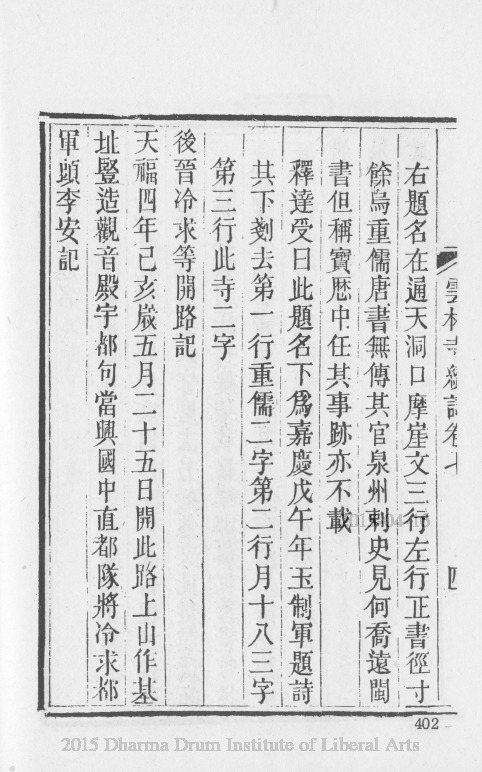 雲林寺續誌卷七
四
右題名在通天洞口摩崖文三行左行正書徑寸
餘烏重儒唐書無傳其官泉州刺史見何喬遠閩
書但稱寶歷中任其事跡亦不載
釋達受曰此題名下爲嘉慶戊午年玉制軍題詩
其下剗去第一行重儒二字第二行月十八三字
第三行此寺二字
後晉冷求等開路記
天福四年己亥歲五月二十五日開此路上山作基
址豎造觀音殿宇都句當興國中直都隊將冷求都
軍頭李安記
402
2015 Dharma Drum Institute of Liberal Arts